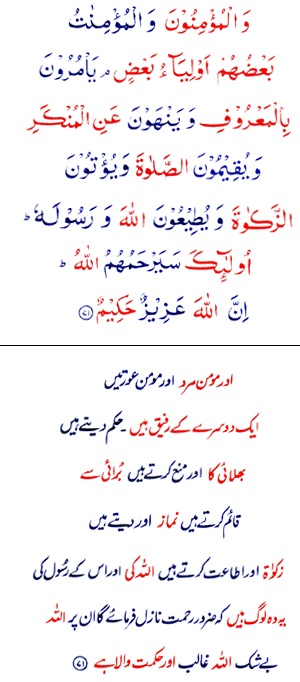 وَ الْمُؤْمِنُوْنَ وَ الْمُؤْمِنٰتُ
بَعْضُهُمْ اَوْلِيَآءُ بَعْضٍ ۘ يَاْمُرُوْنَ
بِالْمَعْرُوْفِ وَ يَنْهَوْنَ عَنِ الْمُنْكَرِ
وَ يُقِيْمُوْنَ الصَّلٰوةَ وَ يُؤْتُوْنَ
الزَّكٰوةَ وَ يُطِيْعُوْنَ اللّٰهَ وَ رَسُوْلَهٗ ؕ
اُولٰٓئِكَ سَيَرْحَمُهُمُ اللّٰهُ ؕ
اِنَّ اللّٰهَ عَزِيْزٌ حَكِيْمٌ ﴿۷۱﴾
اور مؤمن مرد اور مومن عورتیں
ایک دوسرے کے رفیق ہیں ۔ حکم دیتے ہیں
بھلائی کا اور منع کرتے ہیں بُرائی سے
قائم کرتے ہیں نماز اور دیتے ہیں
زکوٰۃ اور اطاعت کرتے ہیں اللہ کی اور اس کے رسُول کی
یہ وہ لوگ ہیں کہ ضرور رحمت نازل فرمائے گا ان پر اللہ
بے شک اللہ غالب اور حکمت والا ہے ﴿۷۱﴾